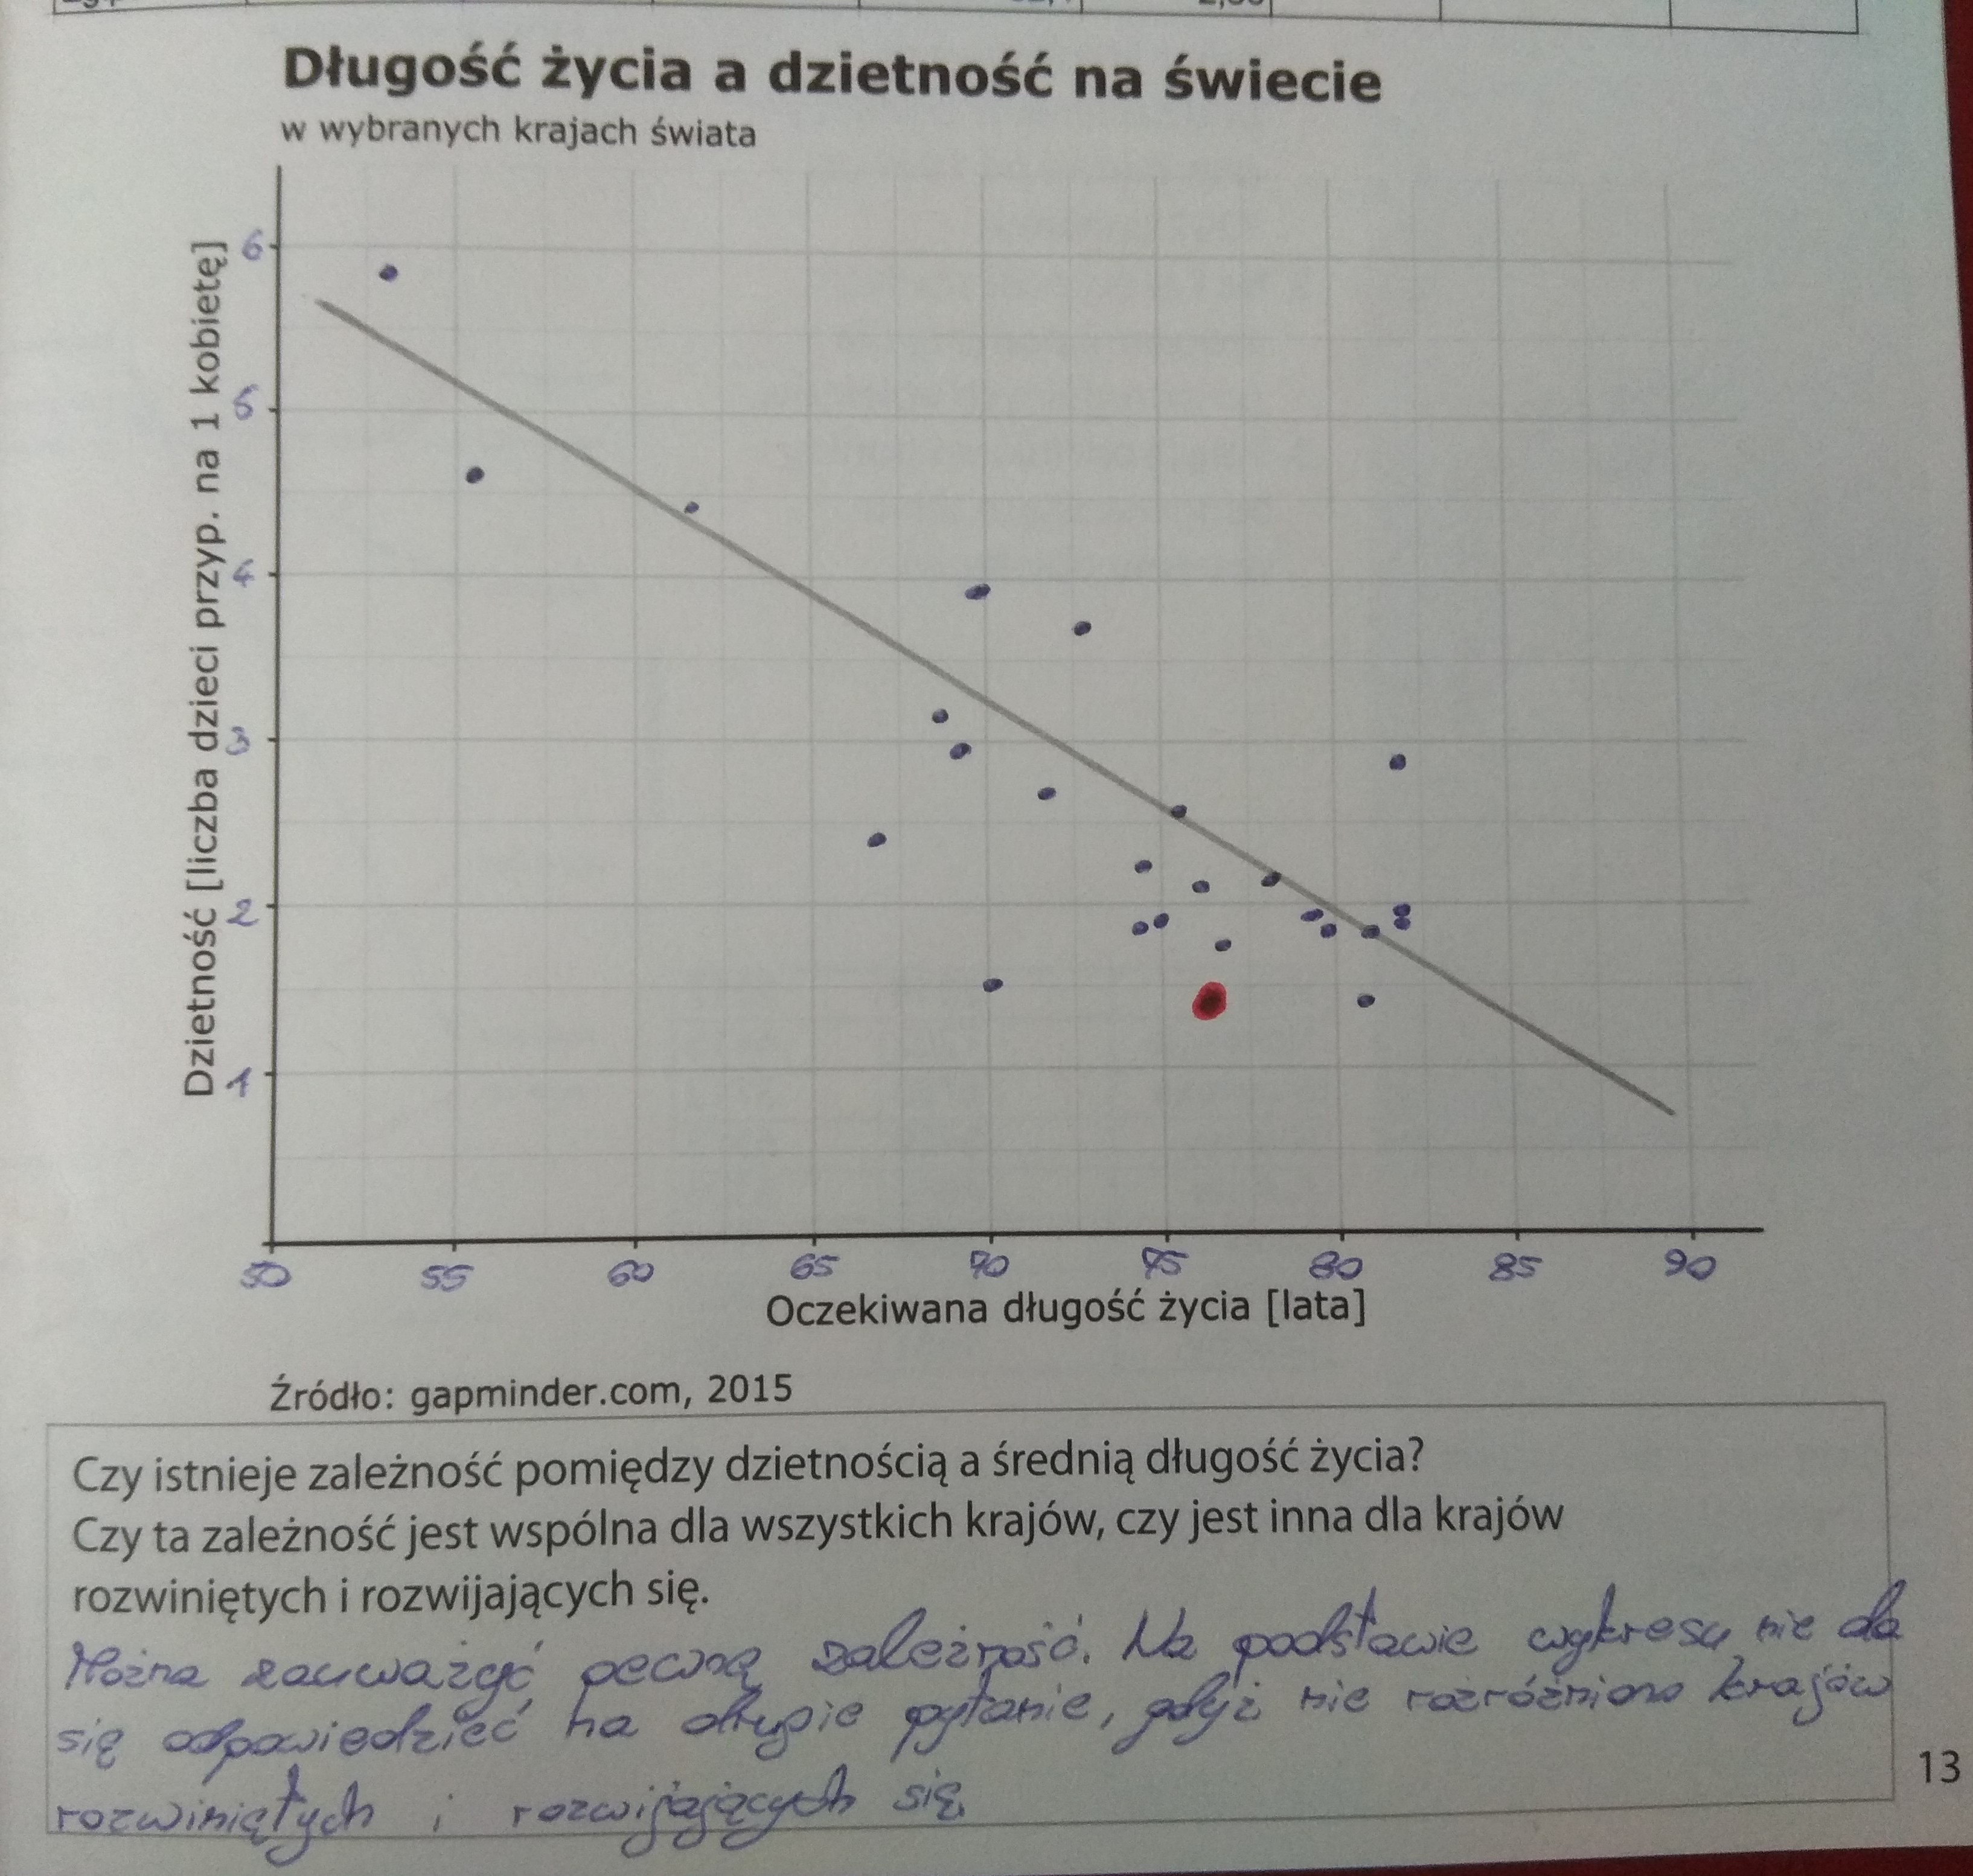 Długość życia a dzietność na świecie
w wybranych krajach świata
Dzietność [liczba dzieci przyp. na 1 kobietę]
6
5
4
3
2
1
50 55 60 65 70 75 80 85 90
Oczekiwana długość życia [lata]
Źródło: gapminder.com, 2015
Czy istnieje zależność pomiędzy dzietnością a średnią długość życia?
Czy ta zależność jest wspólna dla wszystkich krajów, czy jest inna dla krajów
rozwiniętych i rozwijających się.
Można zauważyć pewną zależność. Na podstawie wykresu nie da
się odpowiedzieć na drugie pytanie, gdyż nie rozróżniono krajów
rozwiniętych i rozwijających się.
13